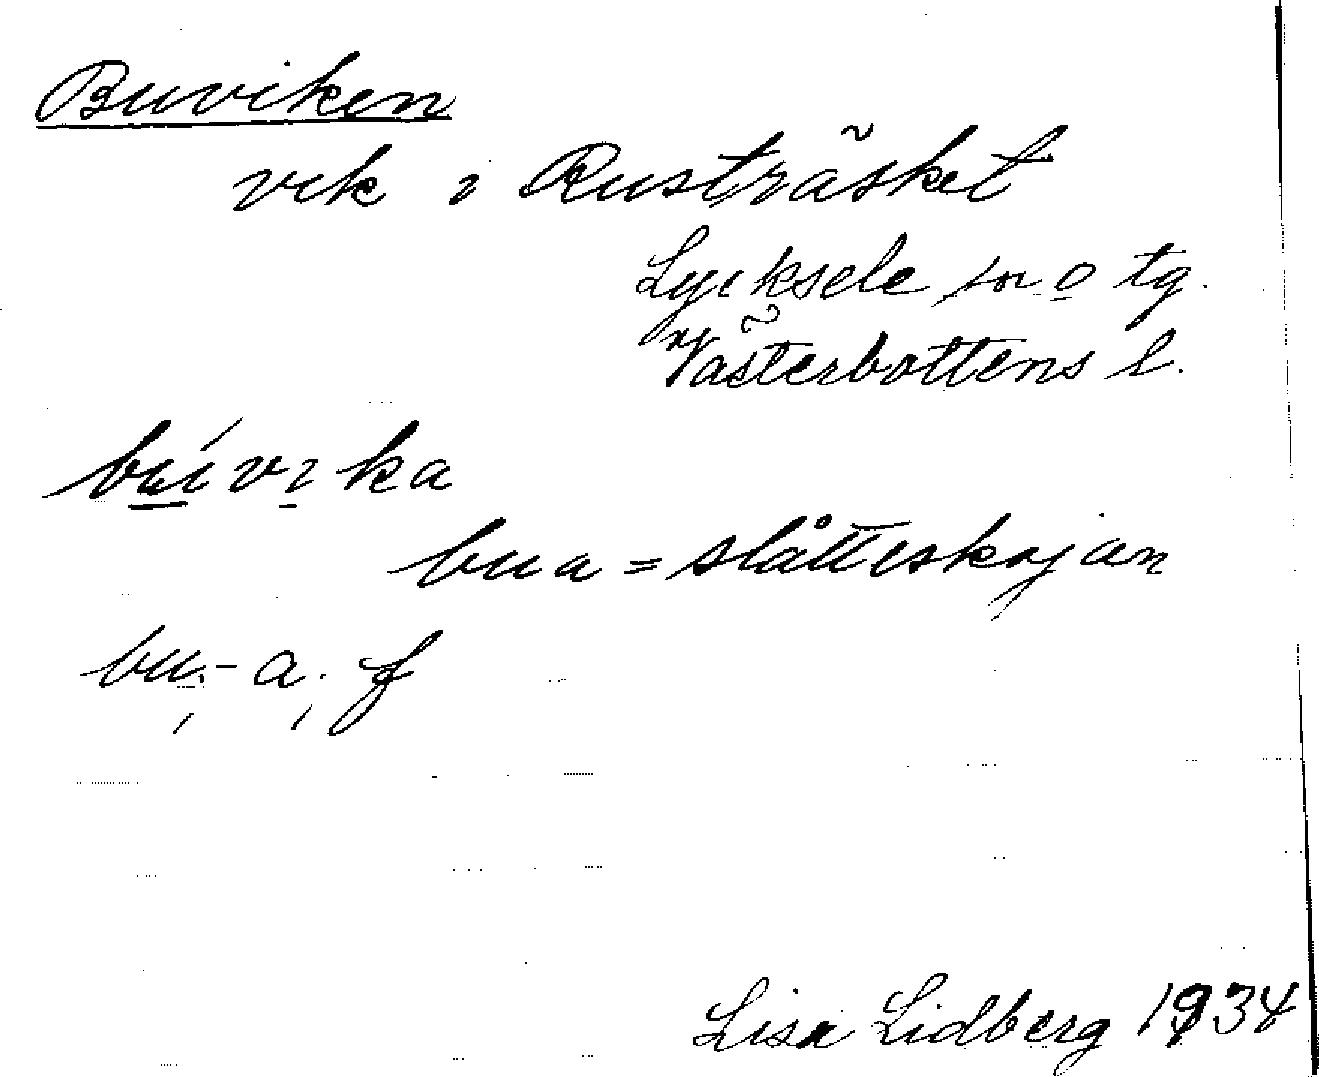 Buviken
vik i Rusträsket
Lycksele sn o tg.
Västerbottens l.
búvika
bua = slåtteskojan
bu.- a. f
Lisa Lidberg 1934